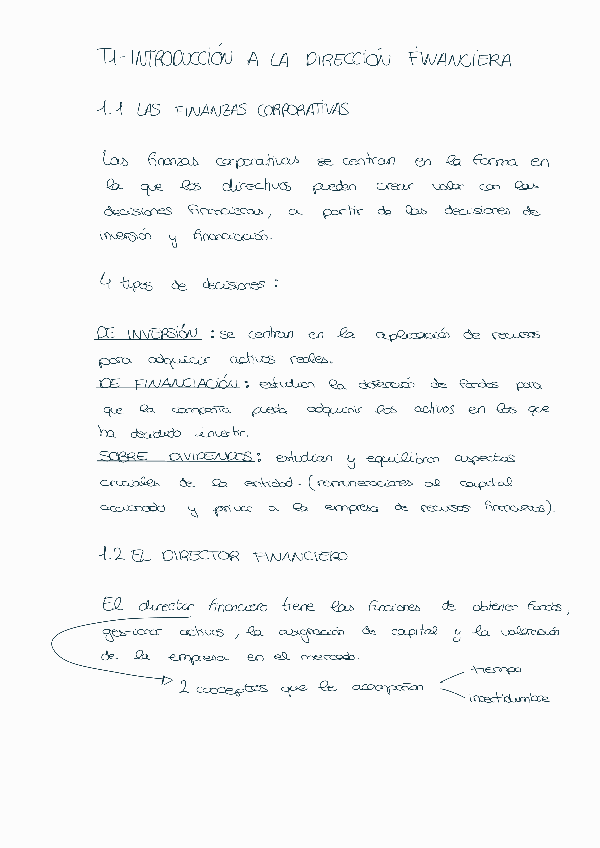 T1-INTRODUCCIÓN A LA DIRECCIÓN FINANCIERA
1.1 LAS FINANZAS CORPORATIVAS
Las finanzas corporativas se centran en la forma en
la que los directivos pueden crear valor con las
decisiones financieras, a partir de las decisiones de
inversión y financiación.
4 tipos de decisiones:
DE INVERSIÓN: se centran en la aplicación de recursos
para adquirir activos reales.
DE FINANCIACIÓN: estudian la obtención de fondos para
que la compañía pueda adquirir los activos en los que
ha decidido invertir.
SOBRE DIVIDENDOS: estudian y equilibran aspectos
cruciales de la entidad. (remuneraciones al capital
accionado y privar a la empresa de recursos financieros).
1.2 EL DIRECTOR FINANCIERO
El director financiero tiene las funciones de obtener fondos,
gestionar activos, la asignación de capital y la valoración
de la empresa en el mercado.
2 conceptos que le acompañan
tiempo
incertidumbre